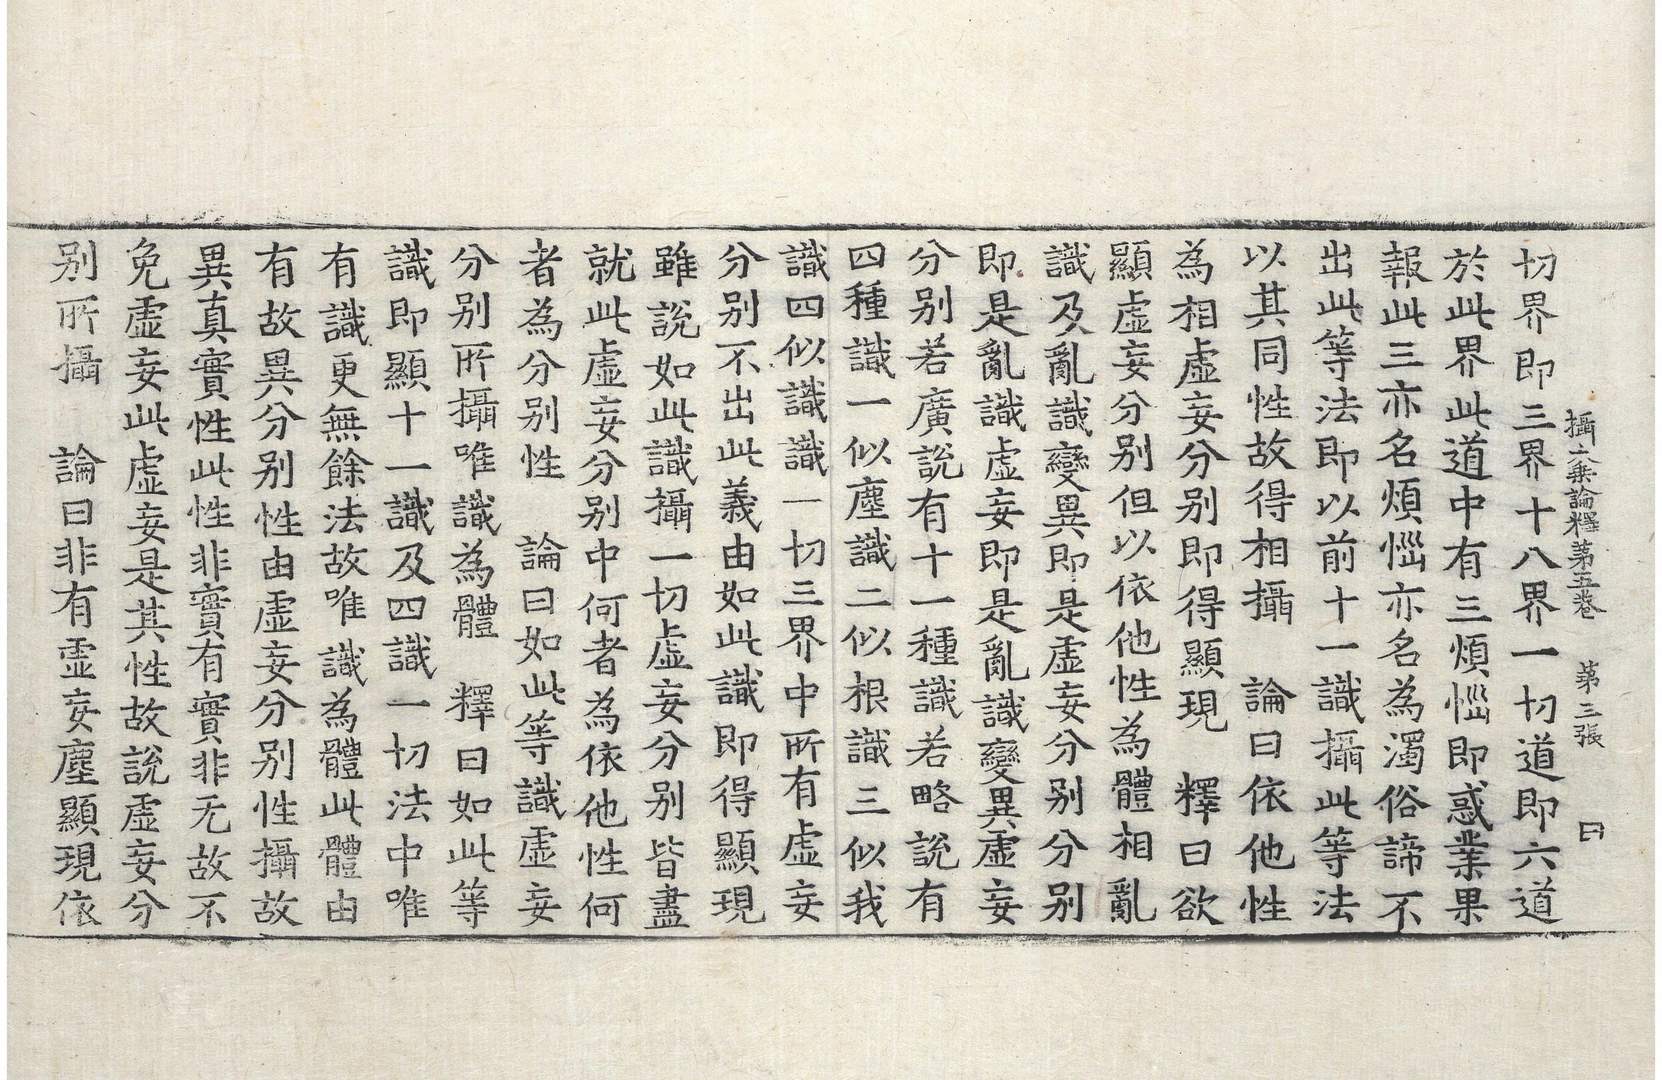 攝大乘論釋第五卷 第三張 曰
切界即三界十八界一切道即六道
於此界此道中有三煩惱即惑業果
報此三亦名煩惱亦名為濁俗諦不
出此等法即以前十一識攝此等法
以其同性故得相攝 論曰依他性
為相虛妄分別即得顯現 釋曰欲
顯虛妄分別但以依他性為體相亂
識及亂識變異即是虛妄分別分別
即是亂識虛妄即是亂識變異虛妄
分別若廣說有十一種識若略說有
四種識一似塵識二似根識三似我
識四似識識一切三界中所有虛妄
分別不出此義由如此識即得顯現
雖說如此識攝一切虛妄分別皆盡
就此虛妄分別中何者為依他性何
者為分別性 論曰如此等識虛妄
分別所攝唯識為體 釋曰如此等
識即顯十一識及四識一切法中唯
有識更無餘法故唯識為體此體由
有故異分別性由虛妄分別性攝故
異真實性此性非實有實非无故不
免虛妄此虛妄是其性故說虛妄分
別所攝 論曰非有虛妄塵顯現依